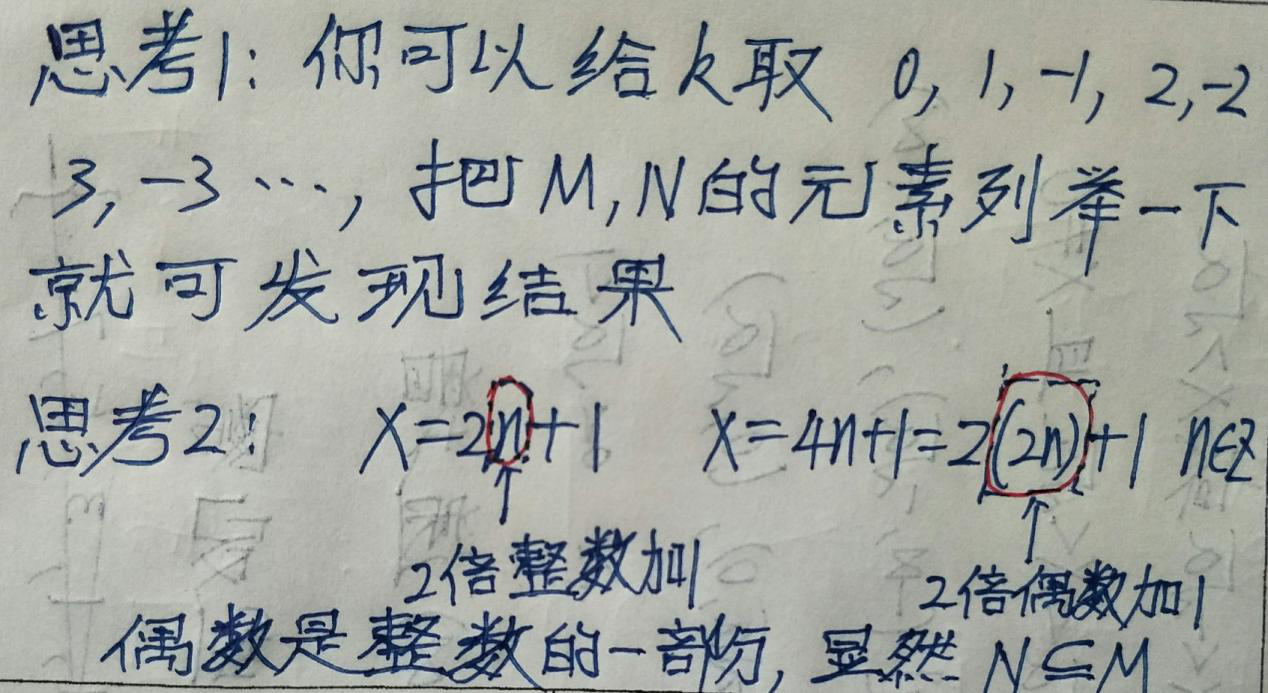 思考1: 你可以给k取 0, 1, -1, 2, -2
3, -3 ⋯, 把M, N的元素列举一下
就可发现结果
思考2: X=2n+1 X=4n+1=2(2n)+1 n∈Z
2倍整数加1 2倍偶数加1
偶数是整数的一部份, 显然 N⊆M